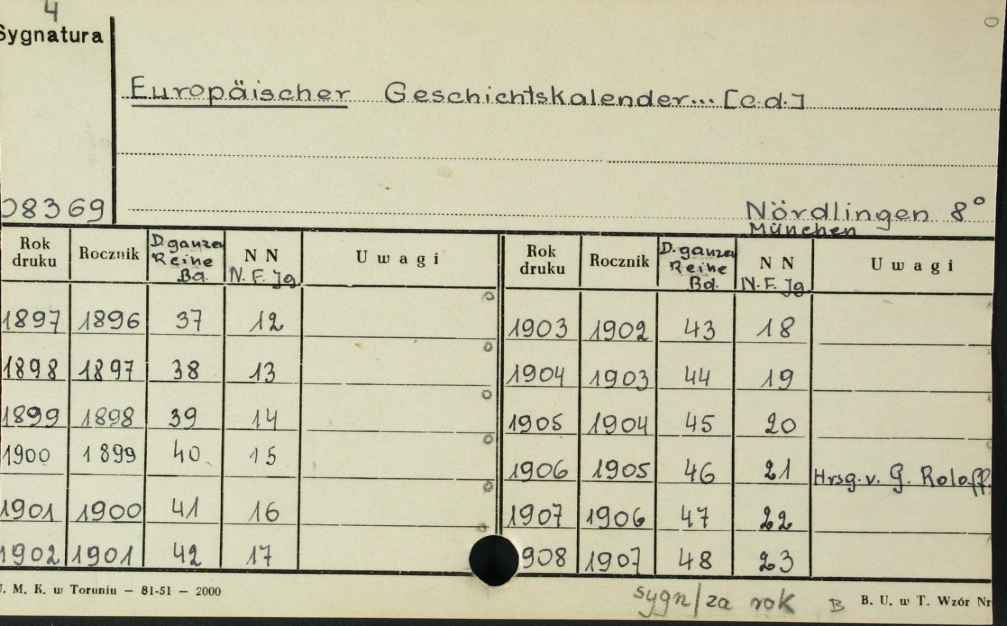 4
Sygnatura
Europäischer Geschichtskalender... [c.d.]
08369
Nördlingen 8°
München
Rok druku Rocznik D. ganzen Reihe Bd. N N N. F. Jg Uwagi
1897 1896 37 12
1898 1897 38 13
1899 1898 39 14
1900 1899 40 15
1901 1900 41 16
1902 1901 42 17
Rok druku Rocznik D. ganzen Reihe Bd. N N N. F. Jg Uwagi
1903 1902 43 18
1904 1903 44 19
1905 1904 45 20
1906 1905 46 21 Hrsg. v. G. Roloff.
1907 1906 47 22
1908 1907 48 23
U. M. K. w Toruniu — 81-51 — 2000
sygn/za rok
B B. U. w T. Wzór Nr